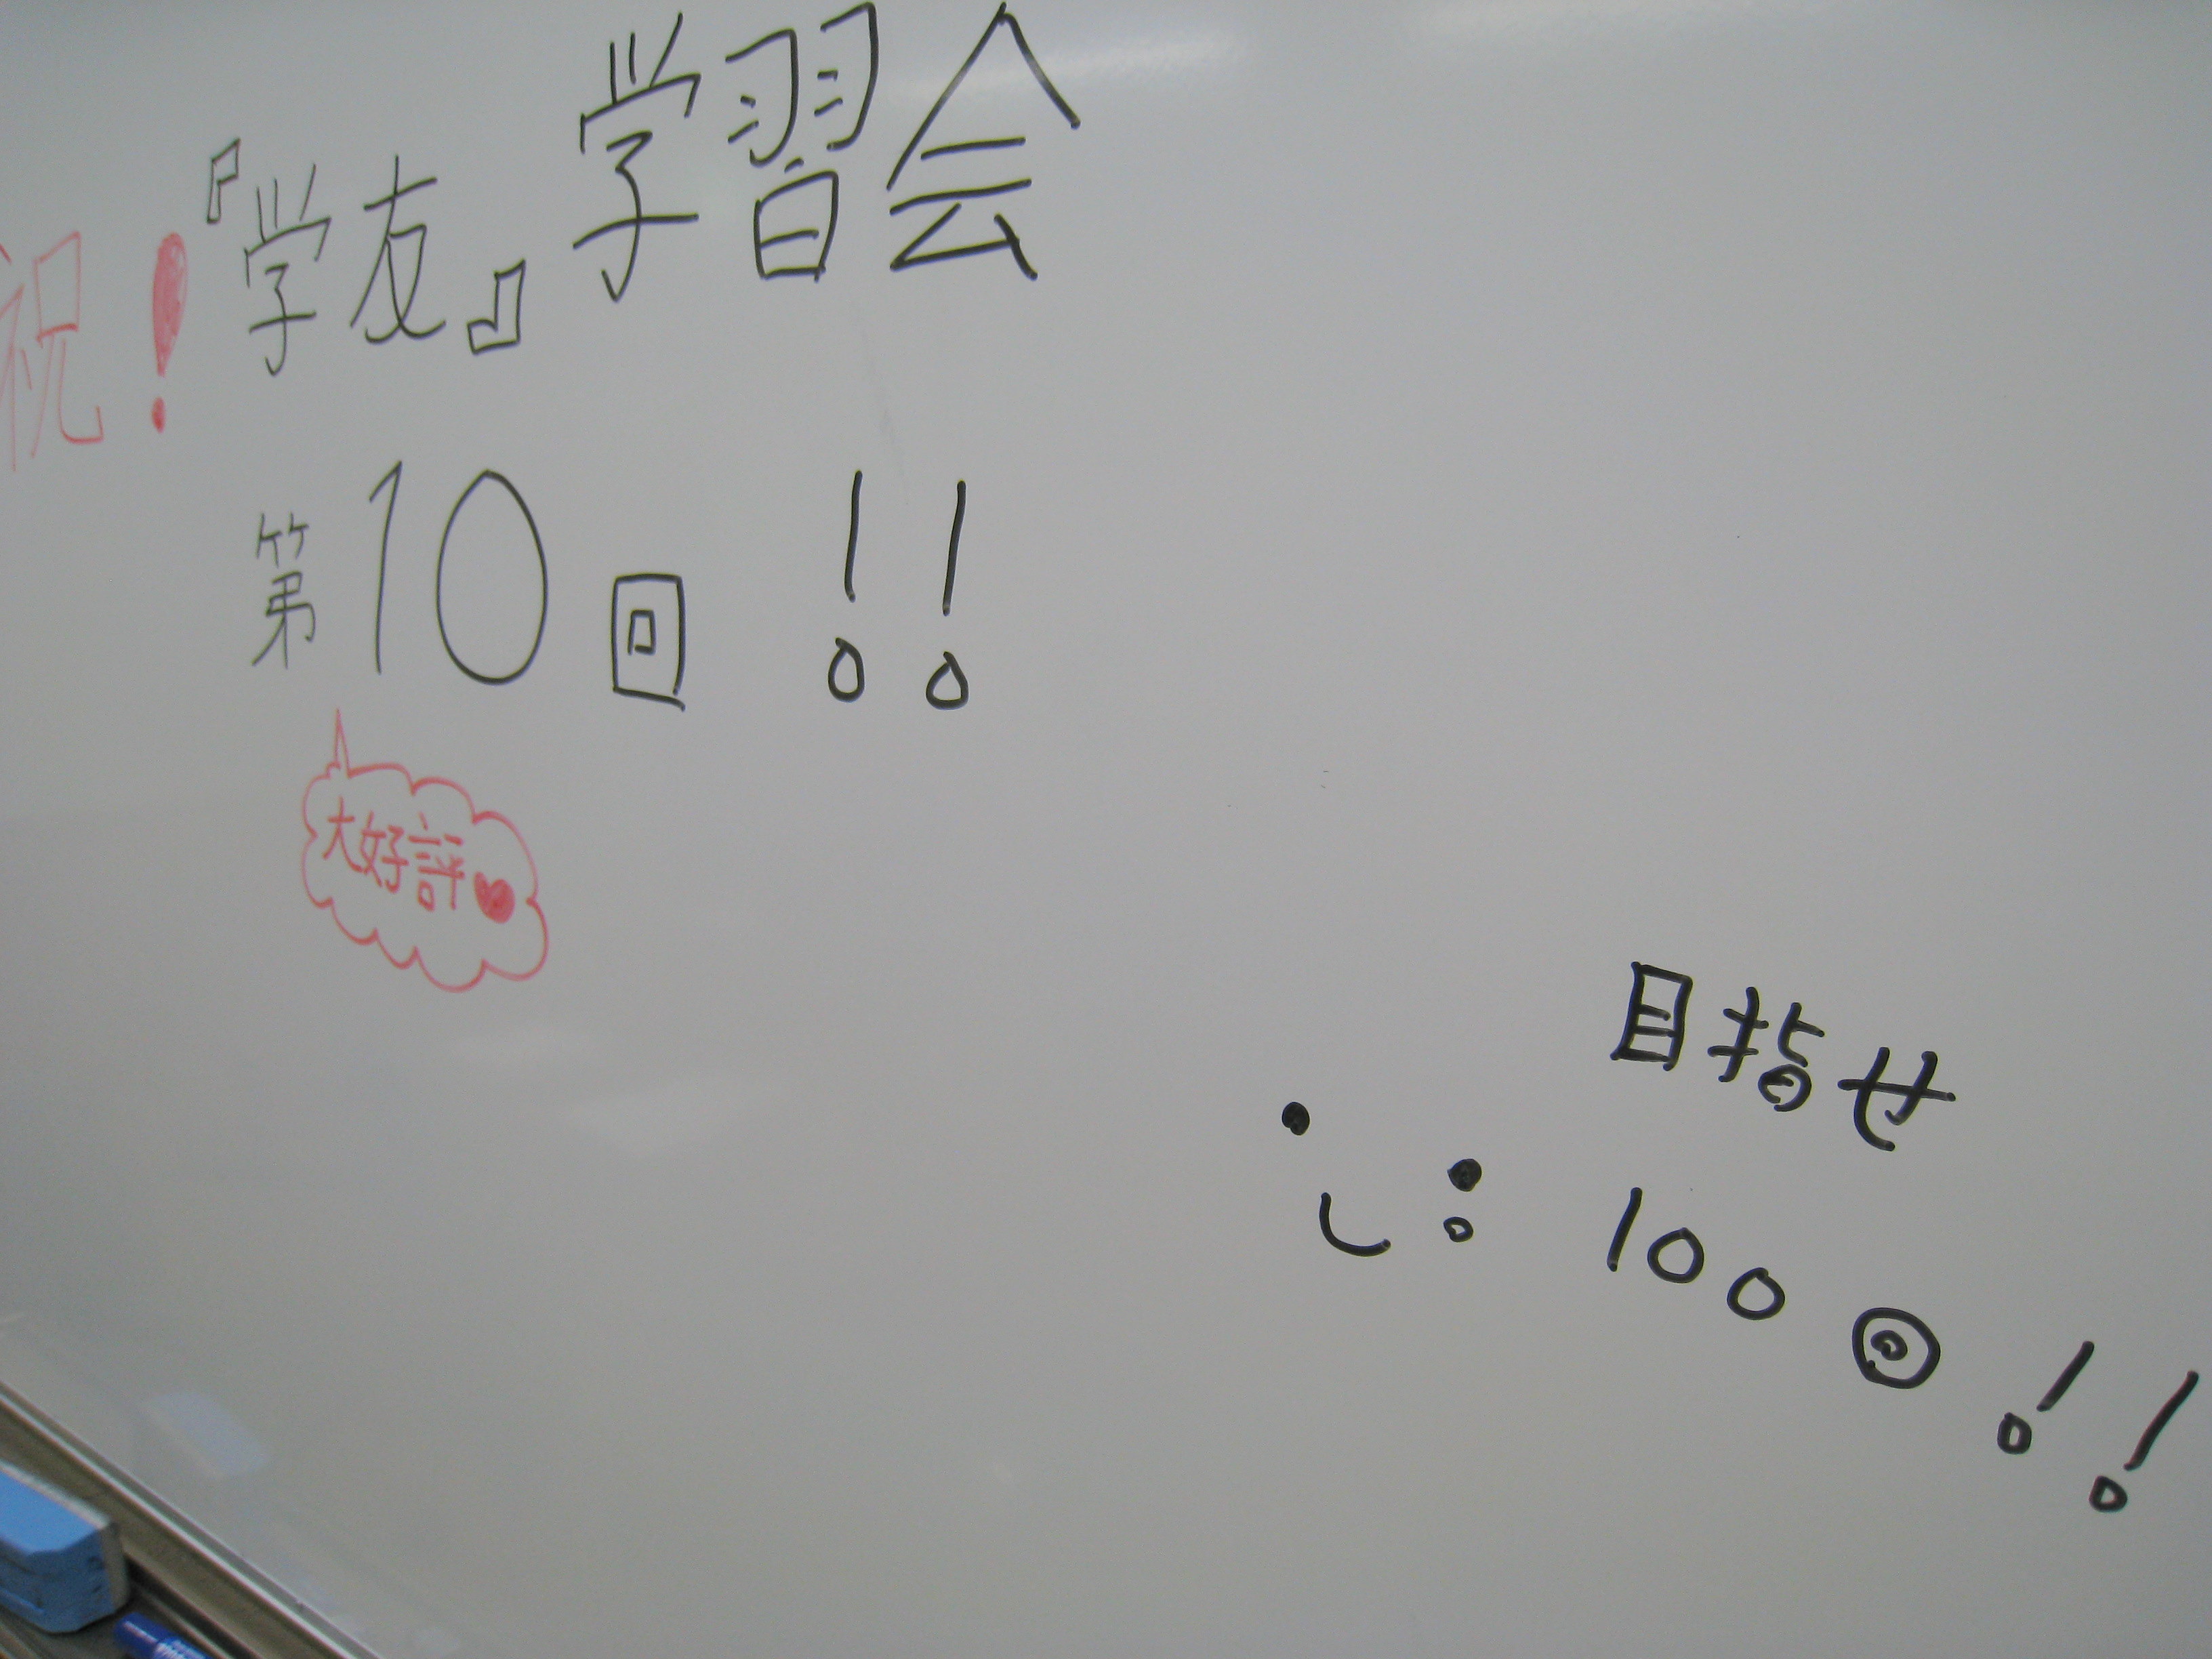 祝!『学友』学習会
第10回!!
大好評♥
目指せ
100回!!